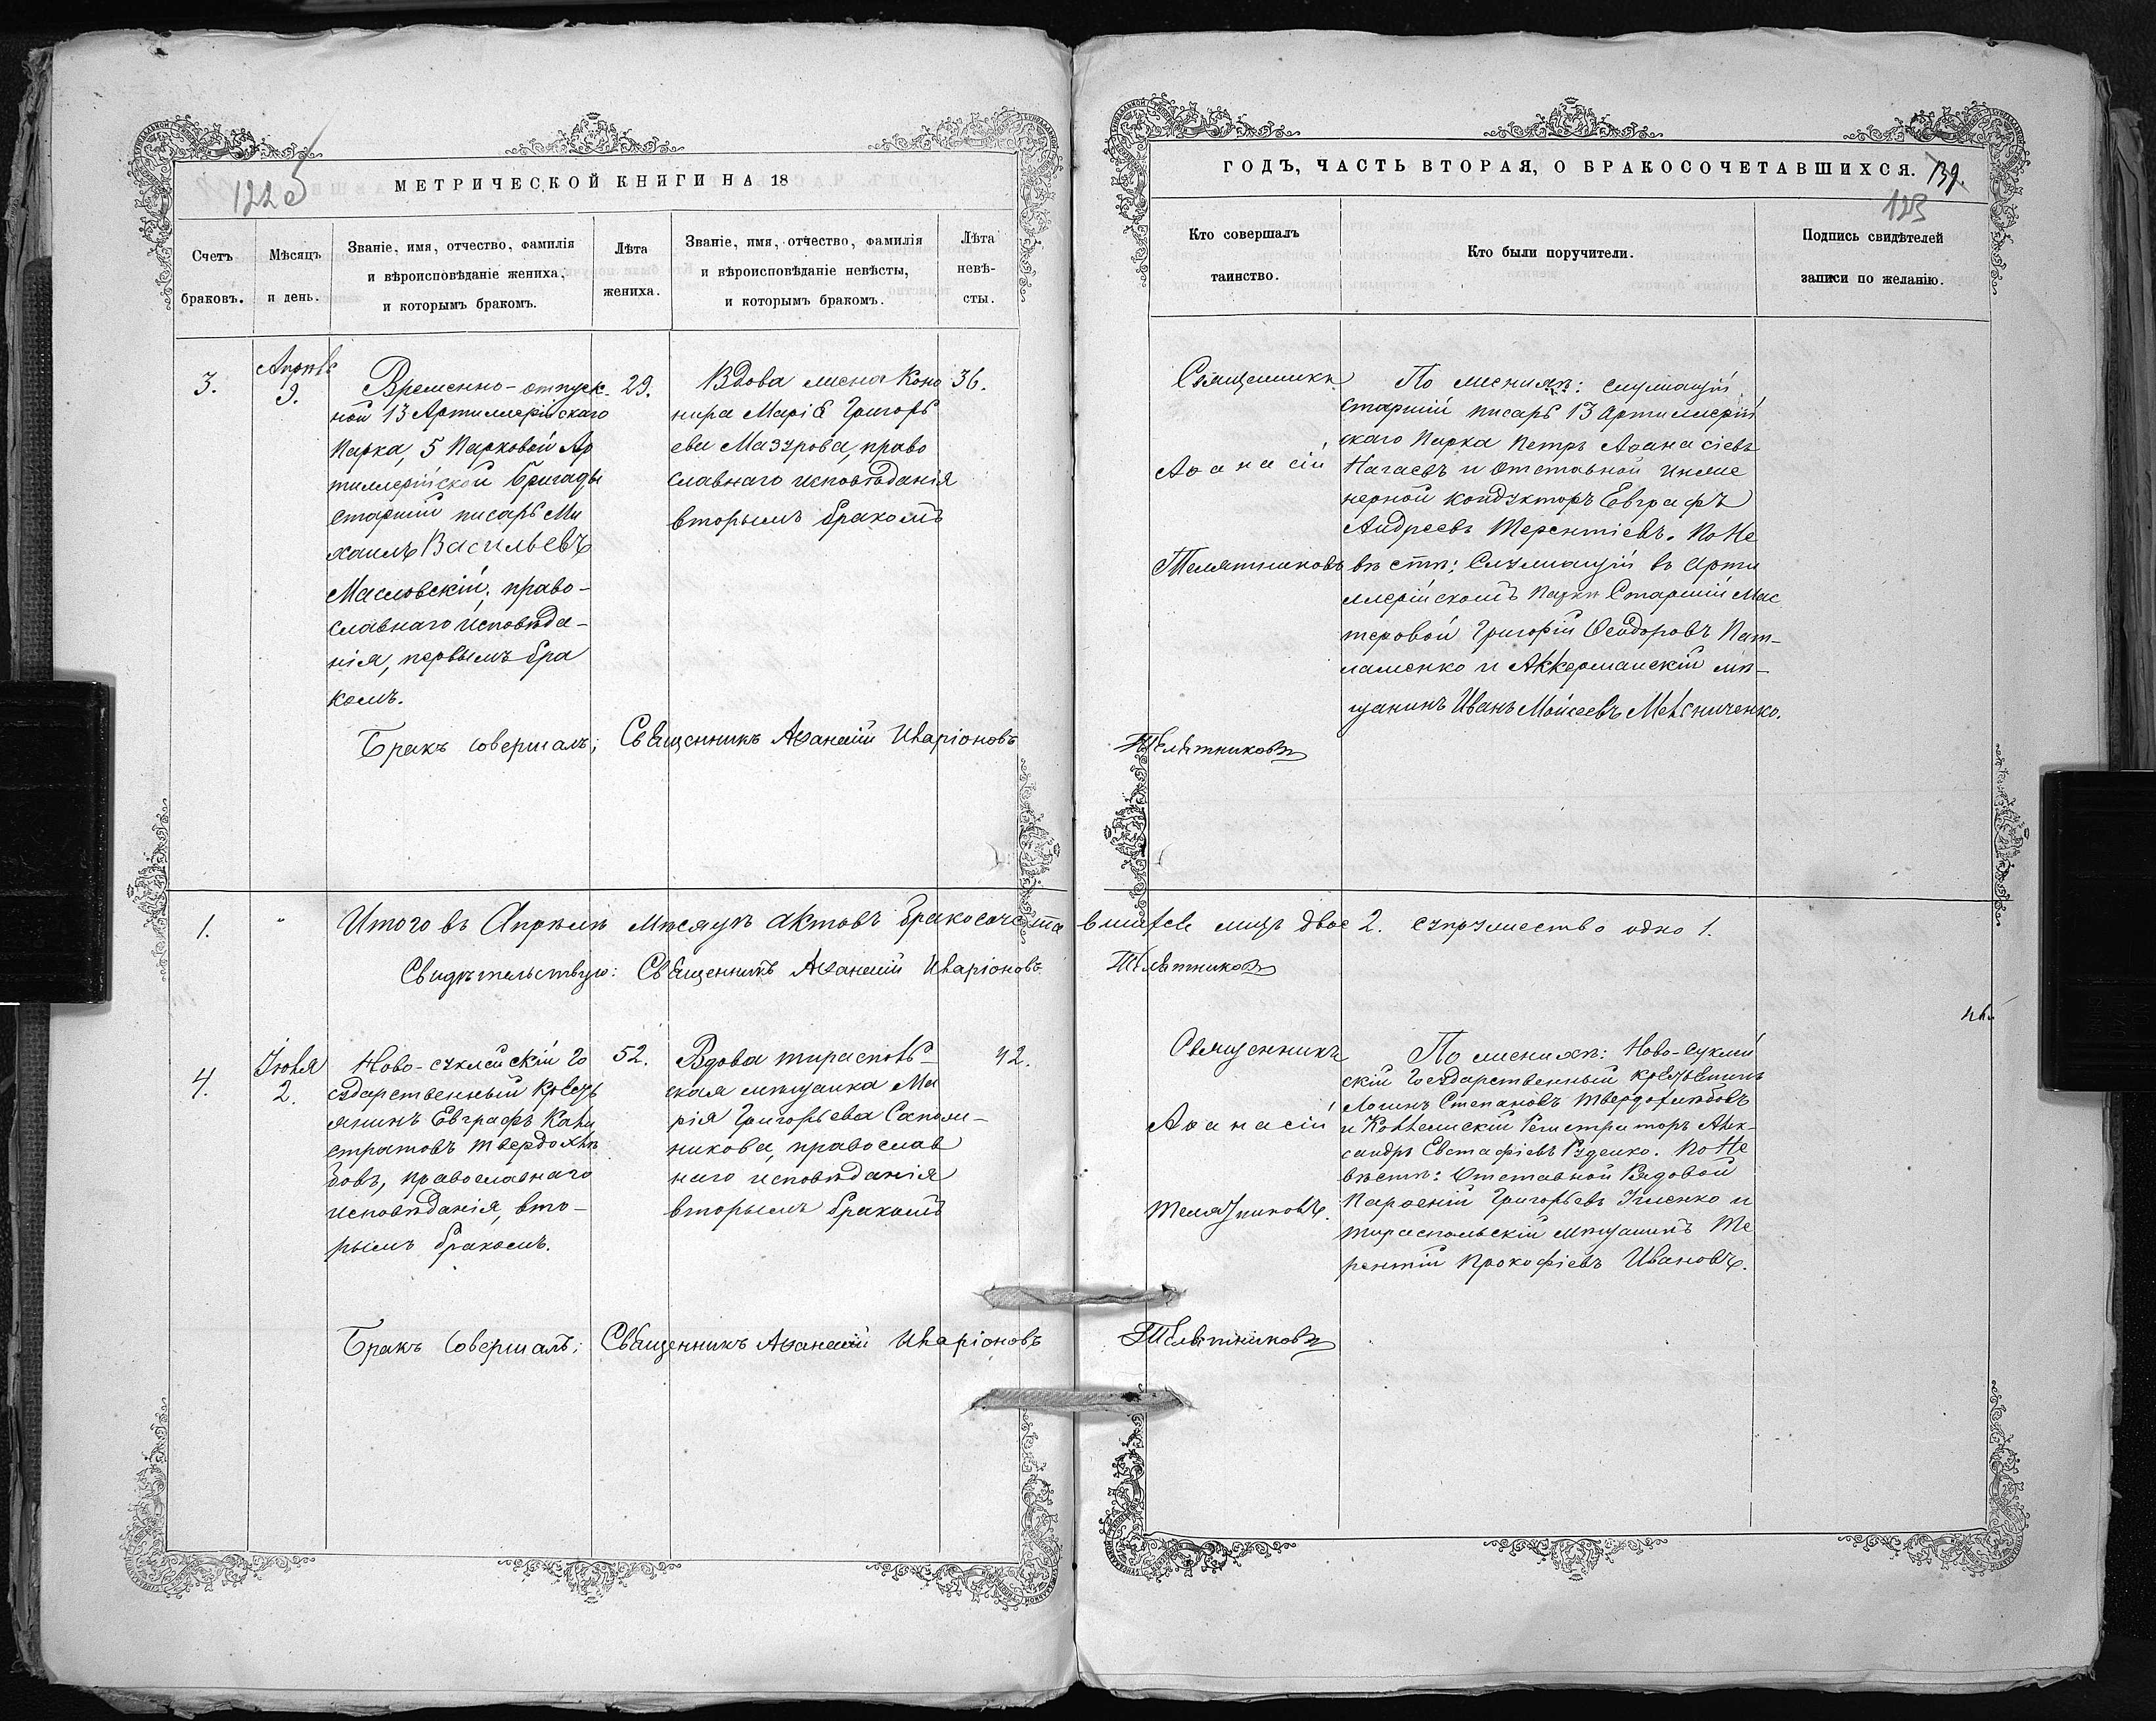 122 об
МЕТРИЧЕСКОЙ КНИГИ НА 18
Счетъ
браковъ.
Мѣсяцъ
и день.
Званіе, имя, отчество, фамилія
и вѣроисповѣданіе жениха,
и которымъ бракомъ.
Лѣта
жениха.
Званіе, имя, отчество, фамилія
и вѣроисповѣданіе невѣсты,
и которымъ бракомъ.
Лѣта
невѣ-
сты.
3.
Апрѣль
9.
Временно-отпуск-
ной 13 Артиллерійскаго
Парка, 5 Парковой Ар
тиллерійской бригады
старшій писарь Ми
хаилъ Васильевъ
Масловскій, право-
славнаго исповѣда-
нія, первымъ бра
комъ.
29.
Вдова жена Коно
нира Марія Григорь
ева Мазурова, право
славнаго исповѣданія
вторымъ бракомъ
36.
Бракъ совершалъ; Священникъ Аѳанасій Иларіоновъ
1.
"
Итого въ Апрѣлѣ мѣсяцѣ актовъ бракосочета
Свидѣтельствую: Священникъ Аѳанасій Иларіоновъ
4.
Іюня
2.
Ново-суклейскій го
сударственный кресть
янинъ Евграфъ Кали
стратовъ Твердохлѣ
бовъ, православнаго
исповѣданія, вто-
рымъ бракомъ.
52.
Вдова тирасполь-
ская мѣщанка Ма
рія Григорьева Сапож-
никова, православ
наго исповѣданія
вторымъ бракомъ
42.
Бракъ совершалъ; Священникъ Аѳанасій Иларіоновъ
ГОДЪ, ЧАСТЬ ВТОРАЯ, О БРАКОСОЧЕТАВШИХСЯ.
139.
123
Кто совершалъ
таинство.
Кто были поручители.
Подпись свидѣтелей
записи по желанію.
Священникъ
Аѳанасій
Телятниковъ
По женихѣ: служащій
старшій писарь 13 Артиллерій
скаго Парка Петръ Аѳанасіевъ
Нагаевъ и отставной инже
нерной кондукторъ Евграфъ
Андреевъ Терентіевъ. По не
вѣстѣ: Служащій въ Арти
ллерійскомъ Паркѣ Старшій Мас
теровой Григорій Ѳеодоровъ Пат-
ламенко и Аккерманскій мѣ-
щанинъ Иванъ Мойсеевъ Мельниченко.
Телятниковъ
вшихся лицъ двое 2. супружество одно 1.
Телятниковъ
Священникъ
Аѳанасій
Телятниковъ.
По женихѣ: Ново-суклей
скій Государственный крестьянинъ
Логинъ Степановъ Твердохлѣбовъ
и Коллежскій Регистраторъ Алек-
сандръ Евстафіевъ Руденко. По не
вѣстѣ: Отставной Рядовой
Парѳеній Григорьевъ Ищенко и
тираспольскій мѣщанинъ Те
рентій Прокофіевъ Ивановъ.
Телятниковъ